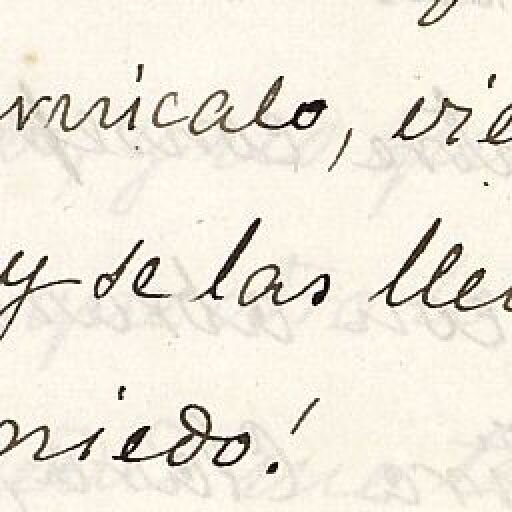 ernicalo, vie
y se las lle
miedo!